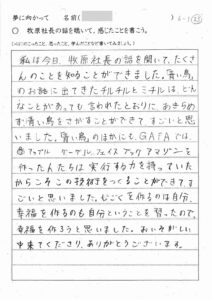 夢に向かって 名前( ) 6-1 23
◎ 牧原社長の話を聴いて、感じたことを書こう。
私は今日、牧原社長の話を聞いて、たくさ
んのことを知ることができました。「青い鳥」
のお話に出てきたチルチルとミチルは、どん
なことがあっても言われたとおりに、あきらめ
ず青い鳥をさがすことができてすごいと思
いました。「青い鳥」のほかにも、GAFAでは、
アップル グーグル、フェイスブック アマゾンを
作った人たちは実行する力を持っていた
からこそこの技術をつくることができてす
ごいと思いました。むごくを作るのは自分、
幸福を作るのも自分ということを習ったので、
幸福を作ろうと思いました。おいそがしい
中来てくださり、ありがとうございます。